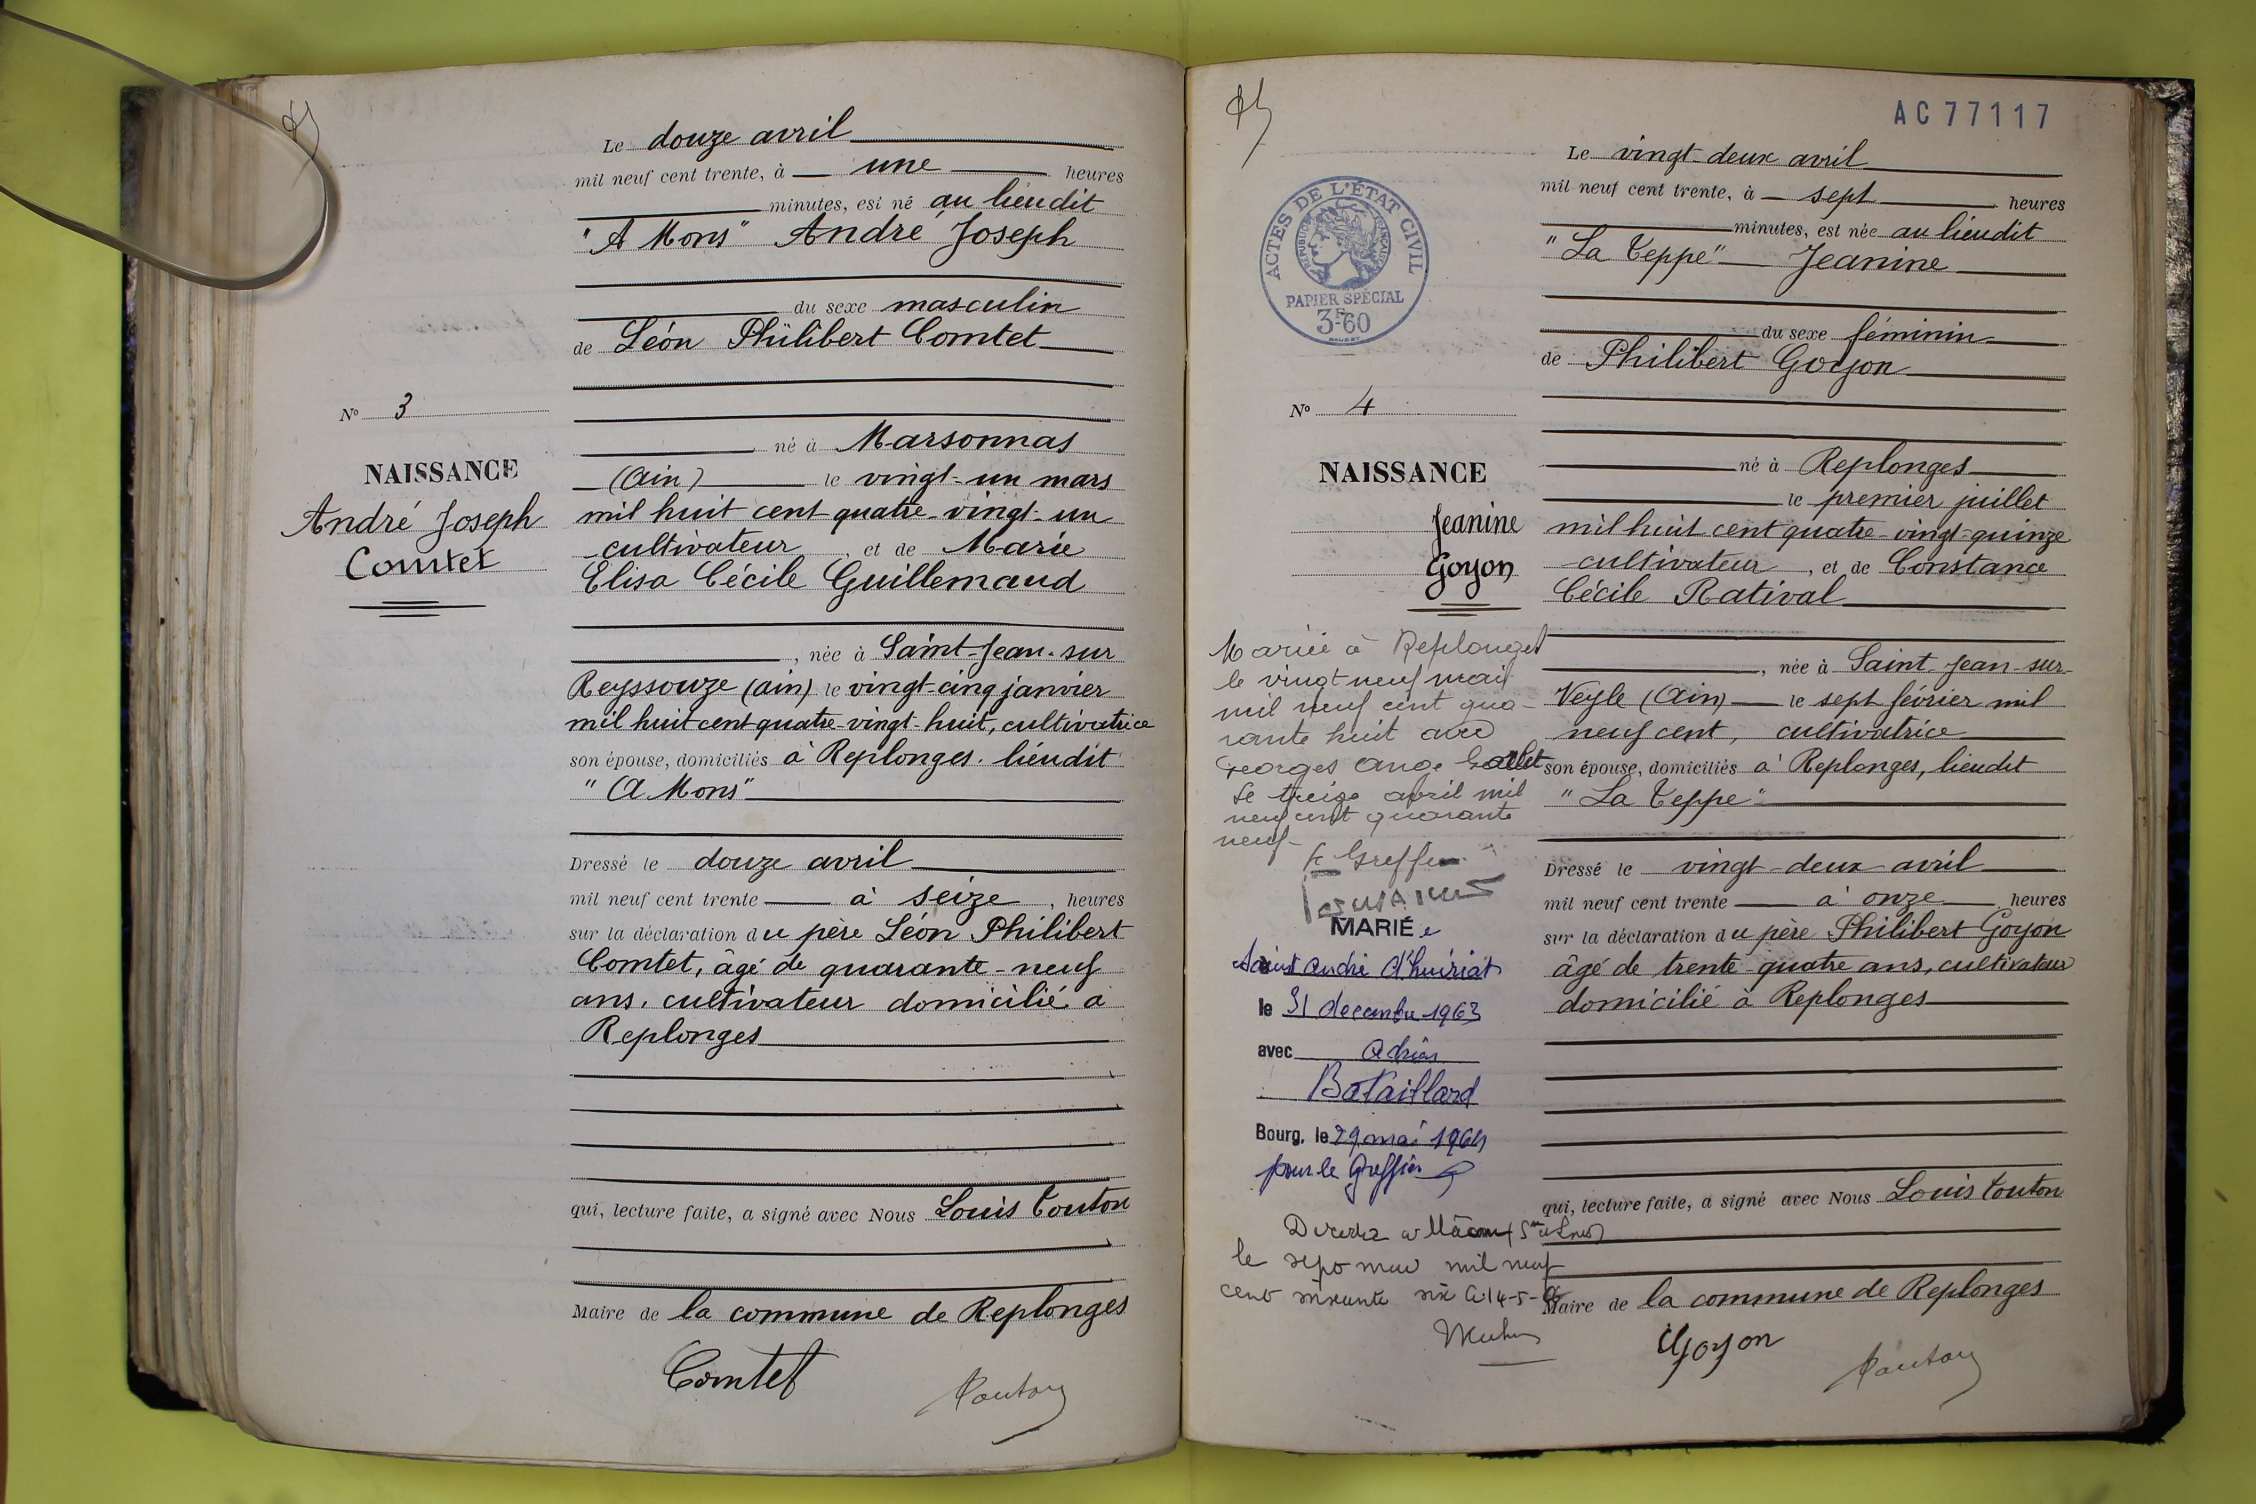 Le douze avril
mil neuf cent trente, à une heures
minutes, est né au lieudit
"A Mons" André Joseph
du sexe masculin
de Léon Philibert Comtet
né à Marsonnas
(Ain) le vingt-un mars
mil huit cent quatre-vingt-un
cultivateur, et de Marie
Elisa Cécile Guillemaud
, née à Saint-Jean-sur
Reyssouze (ain) le vingt-cinq janvier
mil huit cent quatre-vingt-huit, cultivatrice
son épouse, domiciliés à Replonges. lieudit
"A Mons"
Dressé le douze avril
mil neuf cent trente à seize, heures
sur la déclaration du père Léon Philibert
Comtet, âgé de quarante-neuf
ans, cultivateur domicilié à
Replonges
qui, lecture faite, a signé avec Nous Louis Touton
Maire de la commune de Replonges
Comtet
Touton
No 3
NAISSANCE
André Joseph
Comtet
AC77117
Le vingt-deux avril
mil neuf cent trente, à sept heures
minutes, est née au lieudit
"La Teppe" Jeanine
du sexe féminin
de Philibert Goyon
né à Replonges
le premier juillet
mil huit cent quatre-vingt-quinze
cultivateur, et de Constance
Cécile Ratival
, née à Saint-Jean-sur-
Veyle (Ain) le sept février mil
neuf cent, cultivatrice
son épouse, domiciliés à Replonges, lieudit
"La Teppe"
Dressé le vingt-deux avril
mil neuf cent trente à onze heures
sur la déclaration du père Philibert Goyon
âgé de trente-quatre ans, cultivateur
domicilié à Replonges
qui, lecture faite, a signé avec Nous Louis Touton
Maire de la commune de Replonges
Goyon
Touton
ACTES DE L'ÉTAT CIVIL
RÉPUBLIQUE FRANÇAISE
PAPIER SPÉCIAL
3F60
No 4
NAISSANCE
Jeanine
Goyon
Mariée à Replonges
le vingt neuf mai
mil neuf cent qua-
rante huit avec
Georges Ange
Le treize avril mil
neuf cent quarante
neuf-
MARIÉe
Saint André d'huiriat
le 31 decembre 1963
avec
Bataillard
Bourg, le 29 mai 1964
pour le Greffier
le sept mai mil neuf
cent soixante six